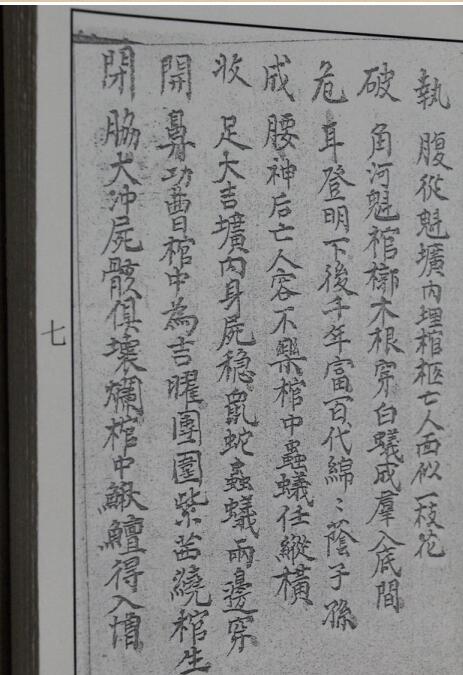 執　腹從魁壙內埋棺柩亡人面似一枝花
破　角河魁棺槨木根穿白蟻成羣入底間
危　耳登明下後千年富百代綿〻蔭子孫
成　腰神后亡人容不樂棺中蟲蟻任縱橫
收　足大吉壙內身屍稳鼠蛇蟲蟻兩邊穿
開　鼻功曹棺中為吉曜團圓紫茜繞棺生
閉　脇大冲屍骸俱壞爛棺中鰍鱣得入増
七